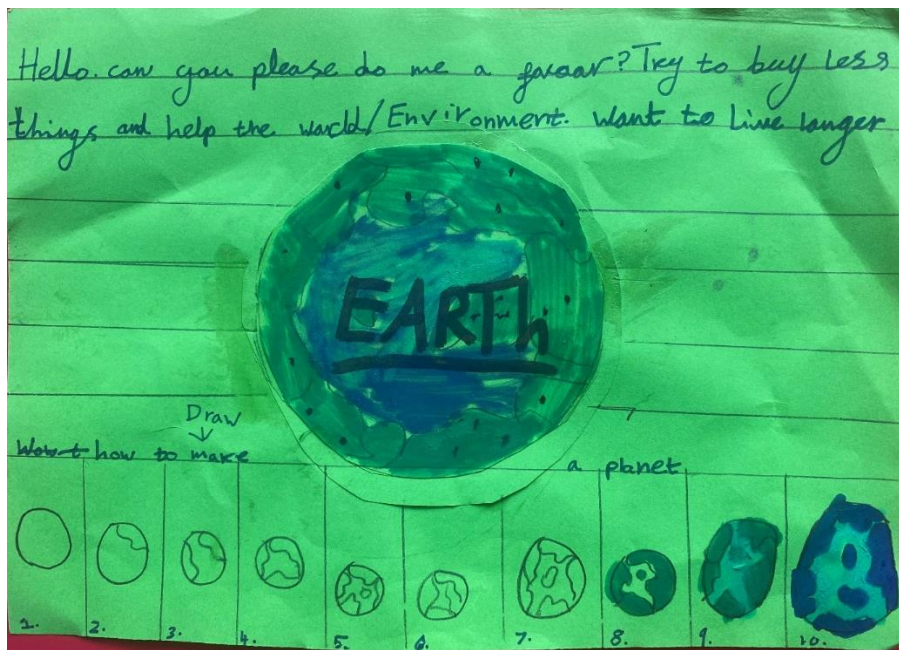 Hello. can you please do me a favour? Try to buy Less
things and help the world/Environment. Want to Live longer
EARTh
Draw
how to make a planet
1. 2. 3. 4. 5. 6. 7. 8. 9. 10.